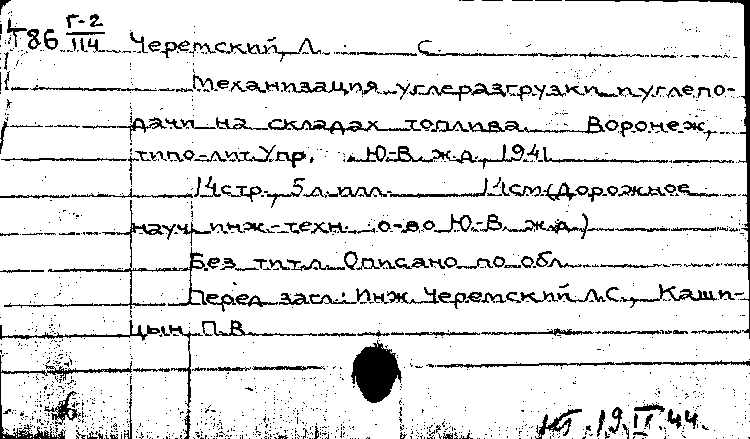 Т86 Г-2/114 Черемский, Л. С.
Механизация углеразгрузки и углепо-
дачи на складах топлива. Воронеж,
типо-лит. Упр. Ю-В. ж.д., 1941.
14 стр., 5 л. илл. 14 см (Дорожное
науч. инж.-техн. о-во Ю-В. ж.д.)
Без тит. л. Описано по обл.
Перед загл.: Инж. Черемский Л.С., Каши-
цын П.В.
19.IV.44.